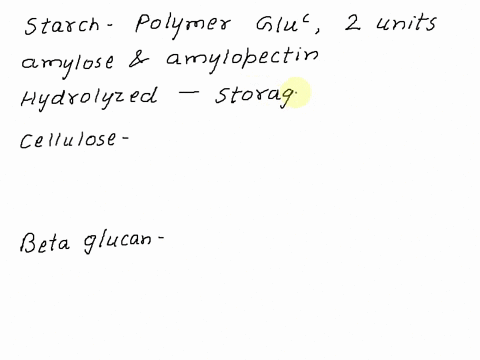 Starch - Polymer Gluc, 2 units
amylose & amylopectin
Hydrolyzed — Storag
Cellulose -
Beta glucan -